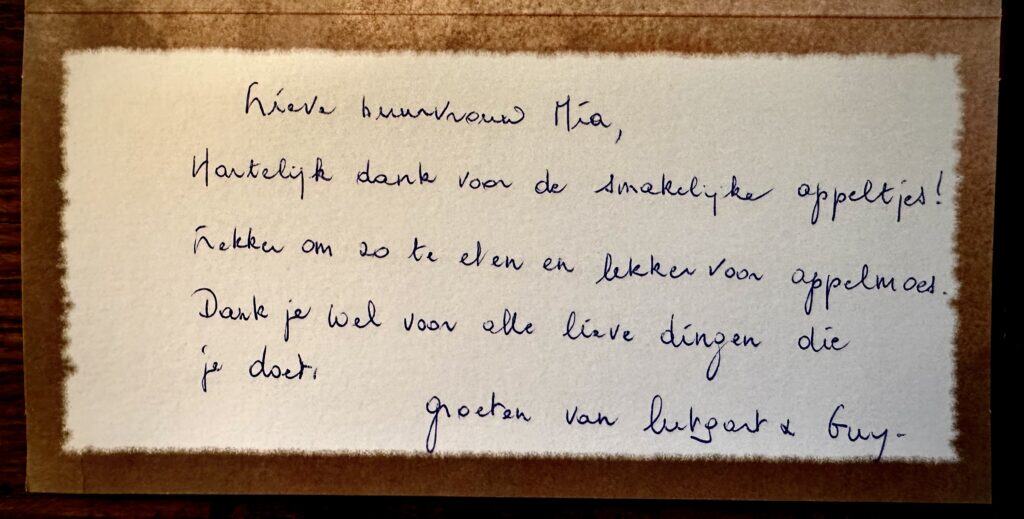 Lieve buurvrouw Mia,
Hartelijk dank voor de smakelijke appeltjes!
Lekker om zo te eten en lekker voor appelmoes.
Dank je wel voor alle lieve dingen die
je doet.
groeten van lutgart & Guy-